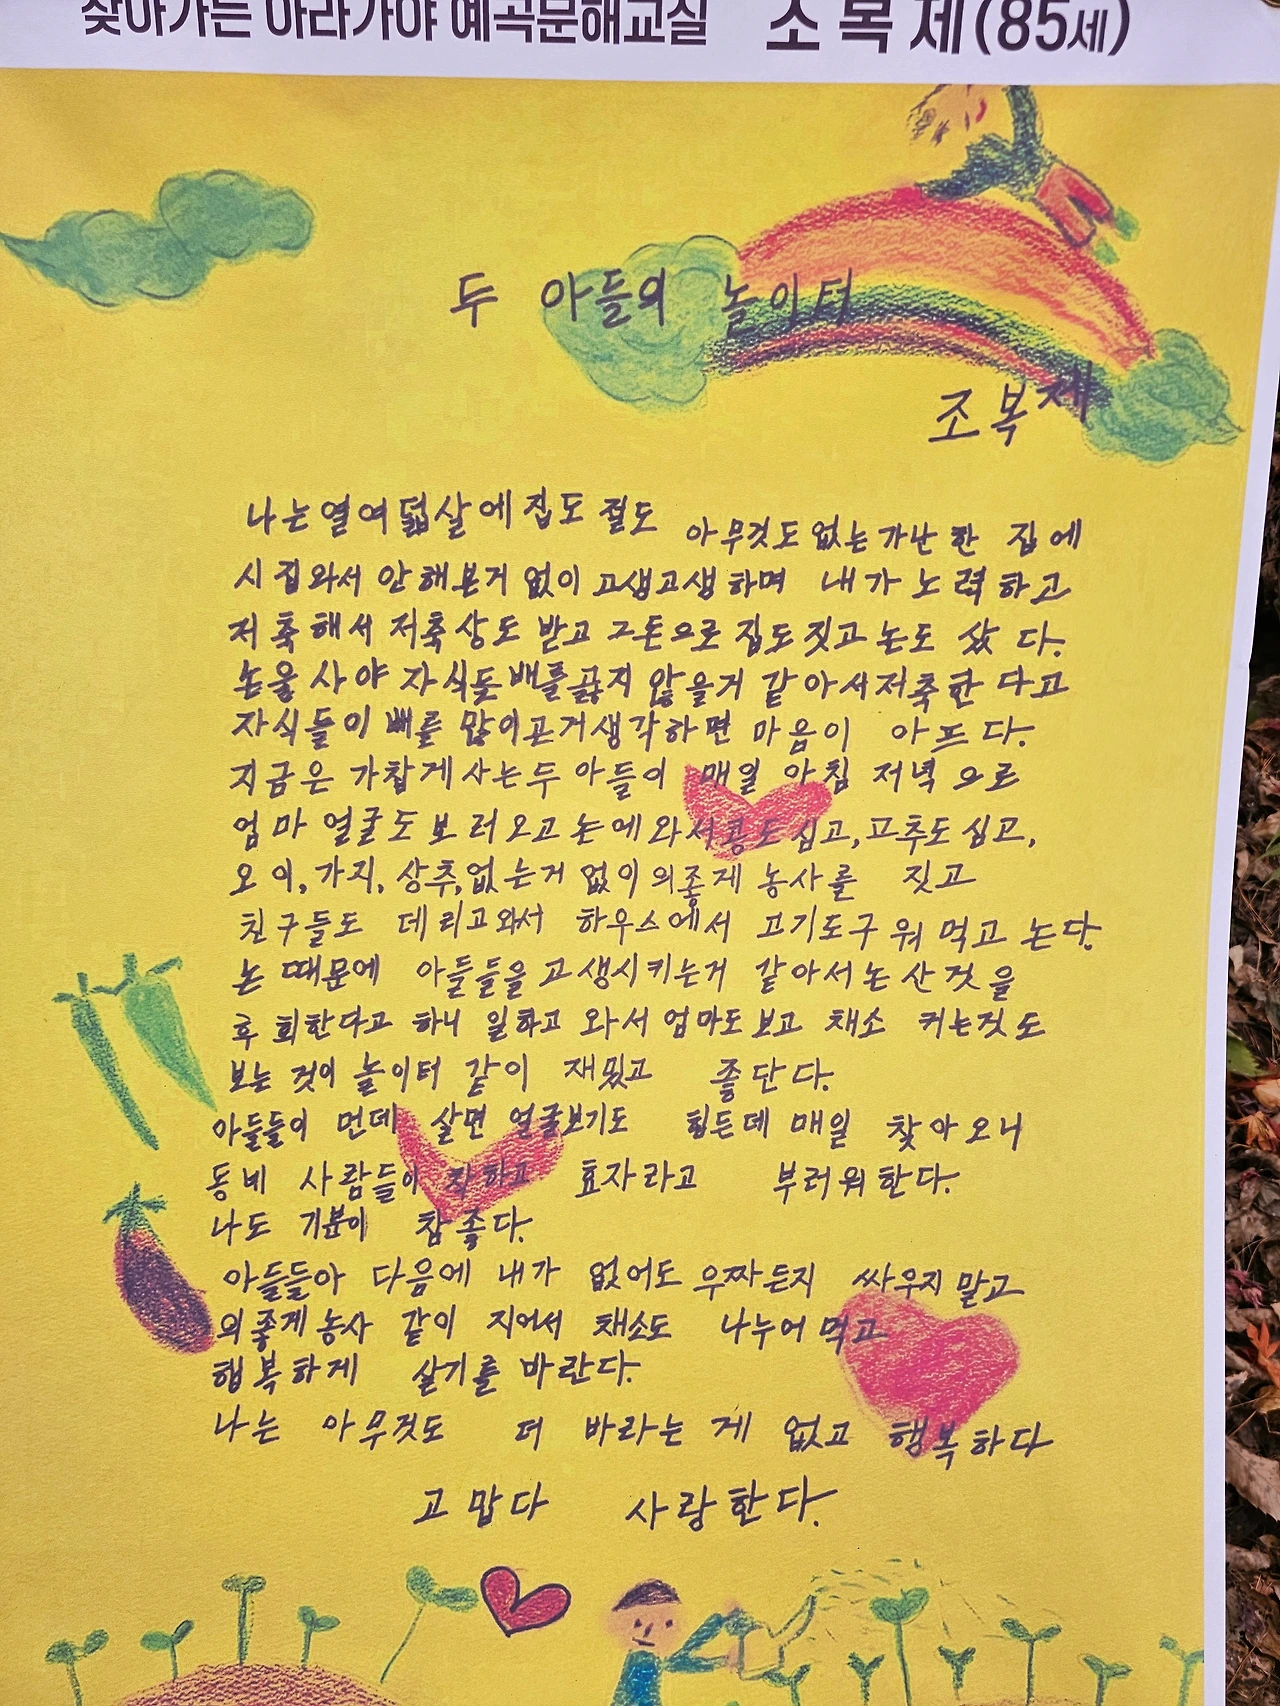 찾아가는 아라가야 예곡문해교실 조복제(85세)
두 아들의 놀이터
조복제
나는열여덟살에집도 절도 아무것도없는가난한 집에
시집와서 안해본거 없이 고생고생하며 내가 노력하고
저축해서 저축상도 받고 그돈으로 집도짓고 논도 샀다.
논을 사야 자식듯배를곯지 않을거 같아서저축한다고
자식들이 빼를 많이곤거생각하면 마음이 아프다.
지금은 가찹게사는두 아들이 매일 아침 저녁으로
엄마 얼굴도 보러오고 논에와서콩도심고,고추도심고,
오이,가지,상추,없는거 없이의좋게 농사를 짓고
친구들도 데리고와서 하우스에서 고기도구워먹고 논다.
논때문에 아들들을고생시키는거 같아서논산것을
후회한다고 하니 일하고 와서엄마도보고 채소 커는것도
보는것이 놀이터 같이 재밌고 좋단다.
아들들이 먼데 살면 얼굴보기도 힘든데 매일 찾아오니
동네 사람들이 착하고 효자라고 부러워한다.
나도 기분이 참좋다.
아들들아 다음에 내가 없어도 우짜든지 싸우지말고
의좋게농사 같이 지어서 채소도 나누어먹고
행복하게 살기를 바란다.
나는 아무것도 더 바라는 게 없고 행복하다
고맙다 사랑한다.